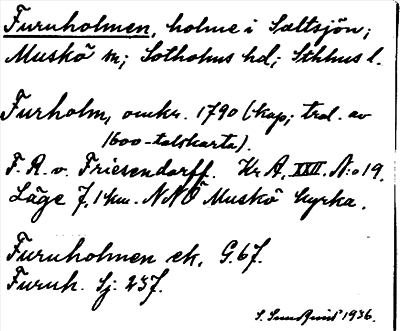 Furuholmen, holme i Saltsjön;
Muskö sn; Sotholms hd; Sthlms l.
Furholm, omkr. 1790 (kop; trol. av
1600-talskarta).
F. R. v. Friesendorff. Kr A, XXII. N:o 19.
Läge 7,1 km. NNÖ Muskö kyrka.
Furuholmen ek. G. 67.
Furuh. Sj. 237.
S. Sundqvist 1936.